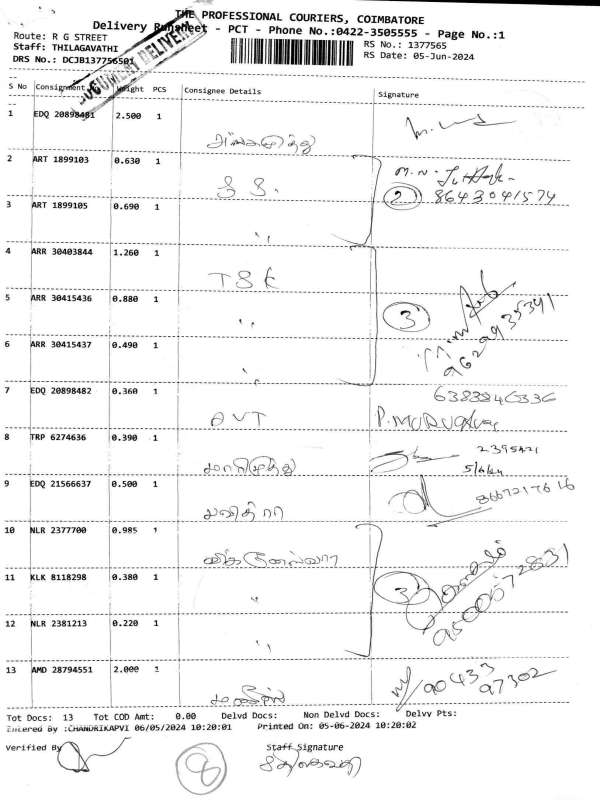 THE PROFESSIONAL COURIERS, COIMBATORE
Delivery Runsheet - PCT - Phone No.:0422-3505555 - Page No.:1
Route: R G STREET
RS No.: 1377565
Staff: THILAGAVATHI
RS Date: 05-Jun-2024
DRS No.: DCJB137756501
DOCUMENT DELIVERY
S No Consignment Weight PCS Consignee Details Signature
1 EDQ 20898481 2.500 1
2 ART 1899103 0.630 1
② 8643041574
3 ART 1899105 0.690 1 "
4 ARR 30403844 1.260 1 TSK
5 ARR 30415436 0.880 1 " 3
9629935341
6 ARR 30415437 0.490 1 "
6383846336
7 EDQ 20898482 0.360 1 AVT P.MURUGAN
8 TRP 6274636 0.390 1 மாரிமுத்து 2395421
5/6/24
9 EDQ 21566637 0.500 1 பவித்ரா 8667217616
10 NLR 2377700 0.985 1
11 KLK 8118298 0.380 1 " 3
9500672831
12 NLR 2381213 0.220 1 "
13 AMD 28794551 2.000 1 90433
97302
Tot Docs: 13 Tot COD Amt: 0.00 Delvd Docs: Non Delvd Docs: Delvy Pts:
Entered By :CHANDRIKAPVI 06/05/2024 10:20:01 Printed On: 05-06-2024 10:20:02
Verified By Staff Signature
8